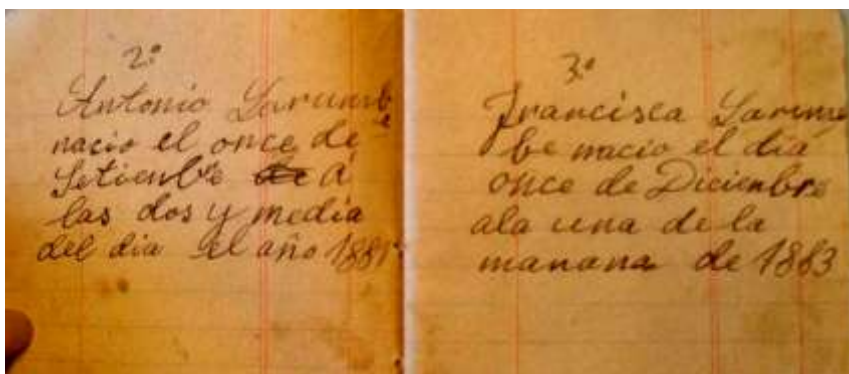 2º
Antonio Larumbe
nacio el once de
Setienbre de á
las dos y media
del dia el año 1881
3º
Francisca Larum
be nacio el dia
once de Diciembre
ala una de la
manana de 1883